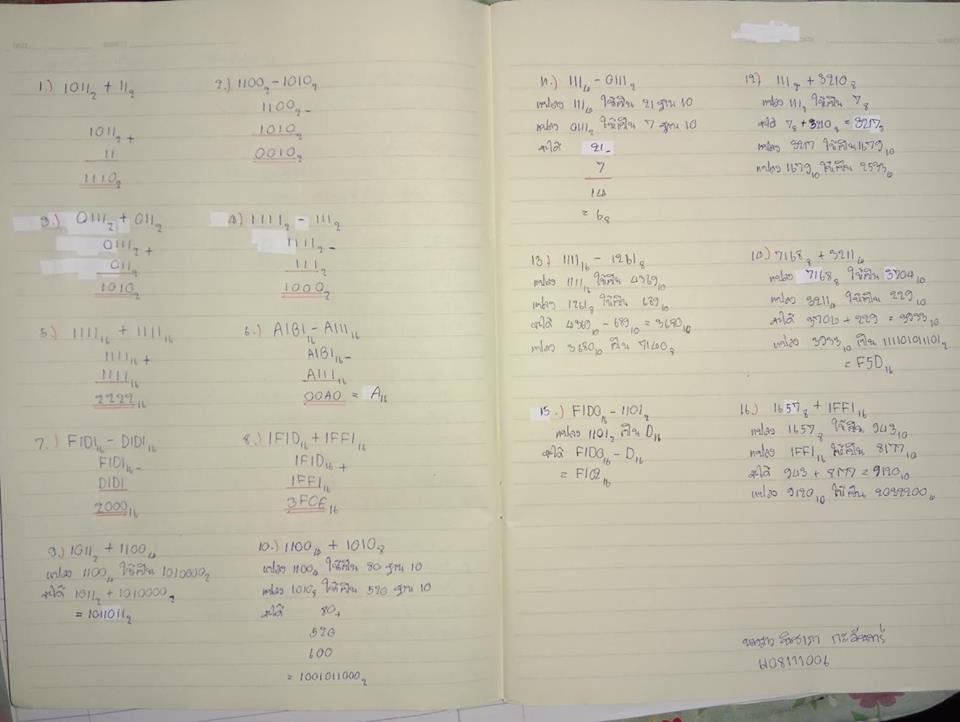 1.) 1011₂ + 11₂
1011₂ +
11
1110₂
2.) 1100₂ - 1010₂
1100₂ -
1010₂
0010₂
3.) 0111₂ + 011₂
0111₂ +
011₂
1010₂
4) 1111₂ - 111₂
1111₂ -
111₂
1000₂
5.) 1111₁₆ + 1111₁₆
1111₁₆ +
1111₁₆
2222₁₆
6.) A1B1 - A111₁₆
A1B1₁₆ -
A111₁₆
00A0 = A₁₆
7.) F1D1₁₆ - D1D1₁₆
F1D1₁₆ -
D1D1
2000₁₆
8.) 1F1D₁₆ + 1FF1₁₆
1F1D₁₆ +
1FF1₁₆
3F0E₁₆
9.) 1011₂ + 1100₄
แปลง 1100₄ ให้เป็น 1010000₂
จะได้ 1011₂ + 1010000₂
= 1011011₂
10.) 1100₄ + 1010₈
แปลง 1100₄ ให้เป็น 80 ฐาน 10
แปลง 1010₈ ให้เป็น 520 ฐาน 10
จะได้ 80 +
520
600
= 1001011000₂
11.) 111₄ - 0111₂
แปลง 111₄ ให้เป็น 21 ฐาน 10
แปลง 0111₂ ให้เป็น 7 ฐาน 10
จะได้ 21 -
7
14
= 6₈
12) 111₂ + 3210₈
แปลง 111₂ ให้เป็น 7₈
จะได้ 7₈ + 3210₈ = 3217₈
แปลง 3217 ให้เป็น 1679₁₀
แปลง 1679₁₀ ให้เป็น
13.) 1111₁₆ - 1261₈
แปลง 1111₁₆ ให้เป็น 4369₁₀
แปลง 1261₈ ให้เป็น 689₁₀
จะได้ 4369₁₀ - 689₁₀ = 3680₁₀
แปลง 3680₁₀ เป็น 7140₈
14.) 7168₈ + 3211₄
แปลง 7168₈ ให้เป็น 3704₁₀
แปลง 3211₄ ให้เป็น 229₁₀
จะได้ 3704 + 229 = 3933₁₀
แปลง 3933₁₀ เป็น 111101011101₂
= F5D₁₆
15.) F1D0₁₆ - 1101₂
แปลง 1101₂ เป็น D₁₆
จะได้ F1D0₁₆ - D₁₆
= F1C2₁₆
16.) 1657₈ + 1FF1₁₆
แปลง 1657₈ ให้เป็น 943₁₀
แปลง 1FF1₁₆ ให้เป็น 8177₁₀
จะได้ 943 + 8177 = 9120₁₀
แปลง 9120₁₀ ให้เป็น 2032200₄
นางสาว